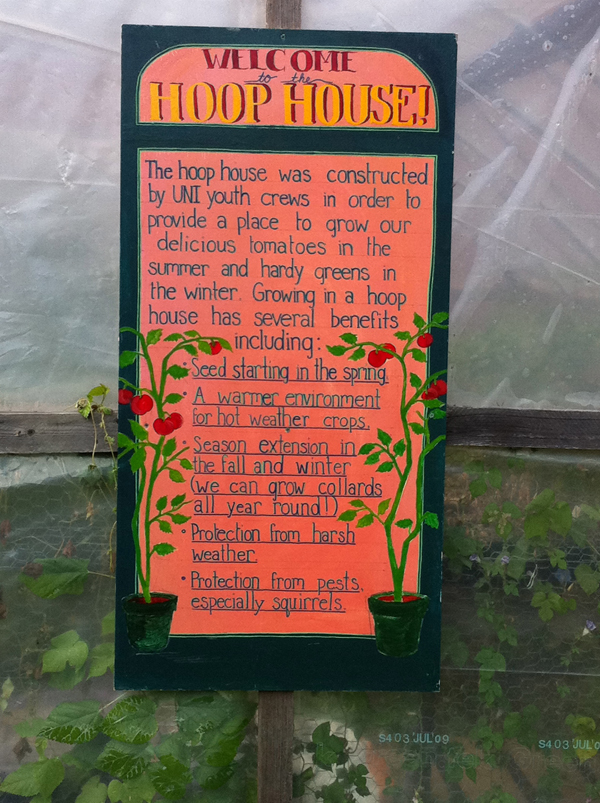 WELCOME
to the
HOOP HOUSE!
The hoop house was constructed
by UNI youth crews in order to
provide a place to grow our
delicious tomatoes in the
summer and hardy greens in
the winter. Growing in a hoop
house has several benefits
including:
• Seed starting in the spring
• A warmer environment
for hot weather crops.
• Season extension in
the fall and winter
(we can grow collards
all year round!)
• Protection from harsh
weather.
• Protection from pests,
especially squirrels.
S4 03 JUL'09
S4 03 'JUL'0